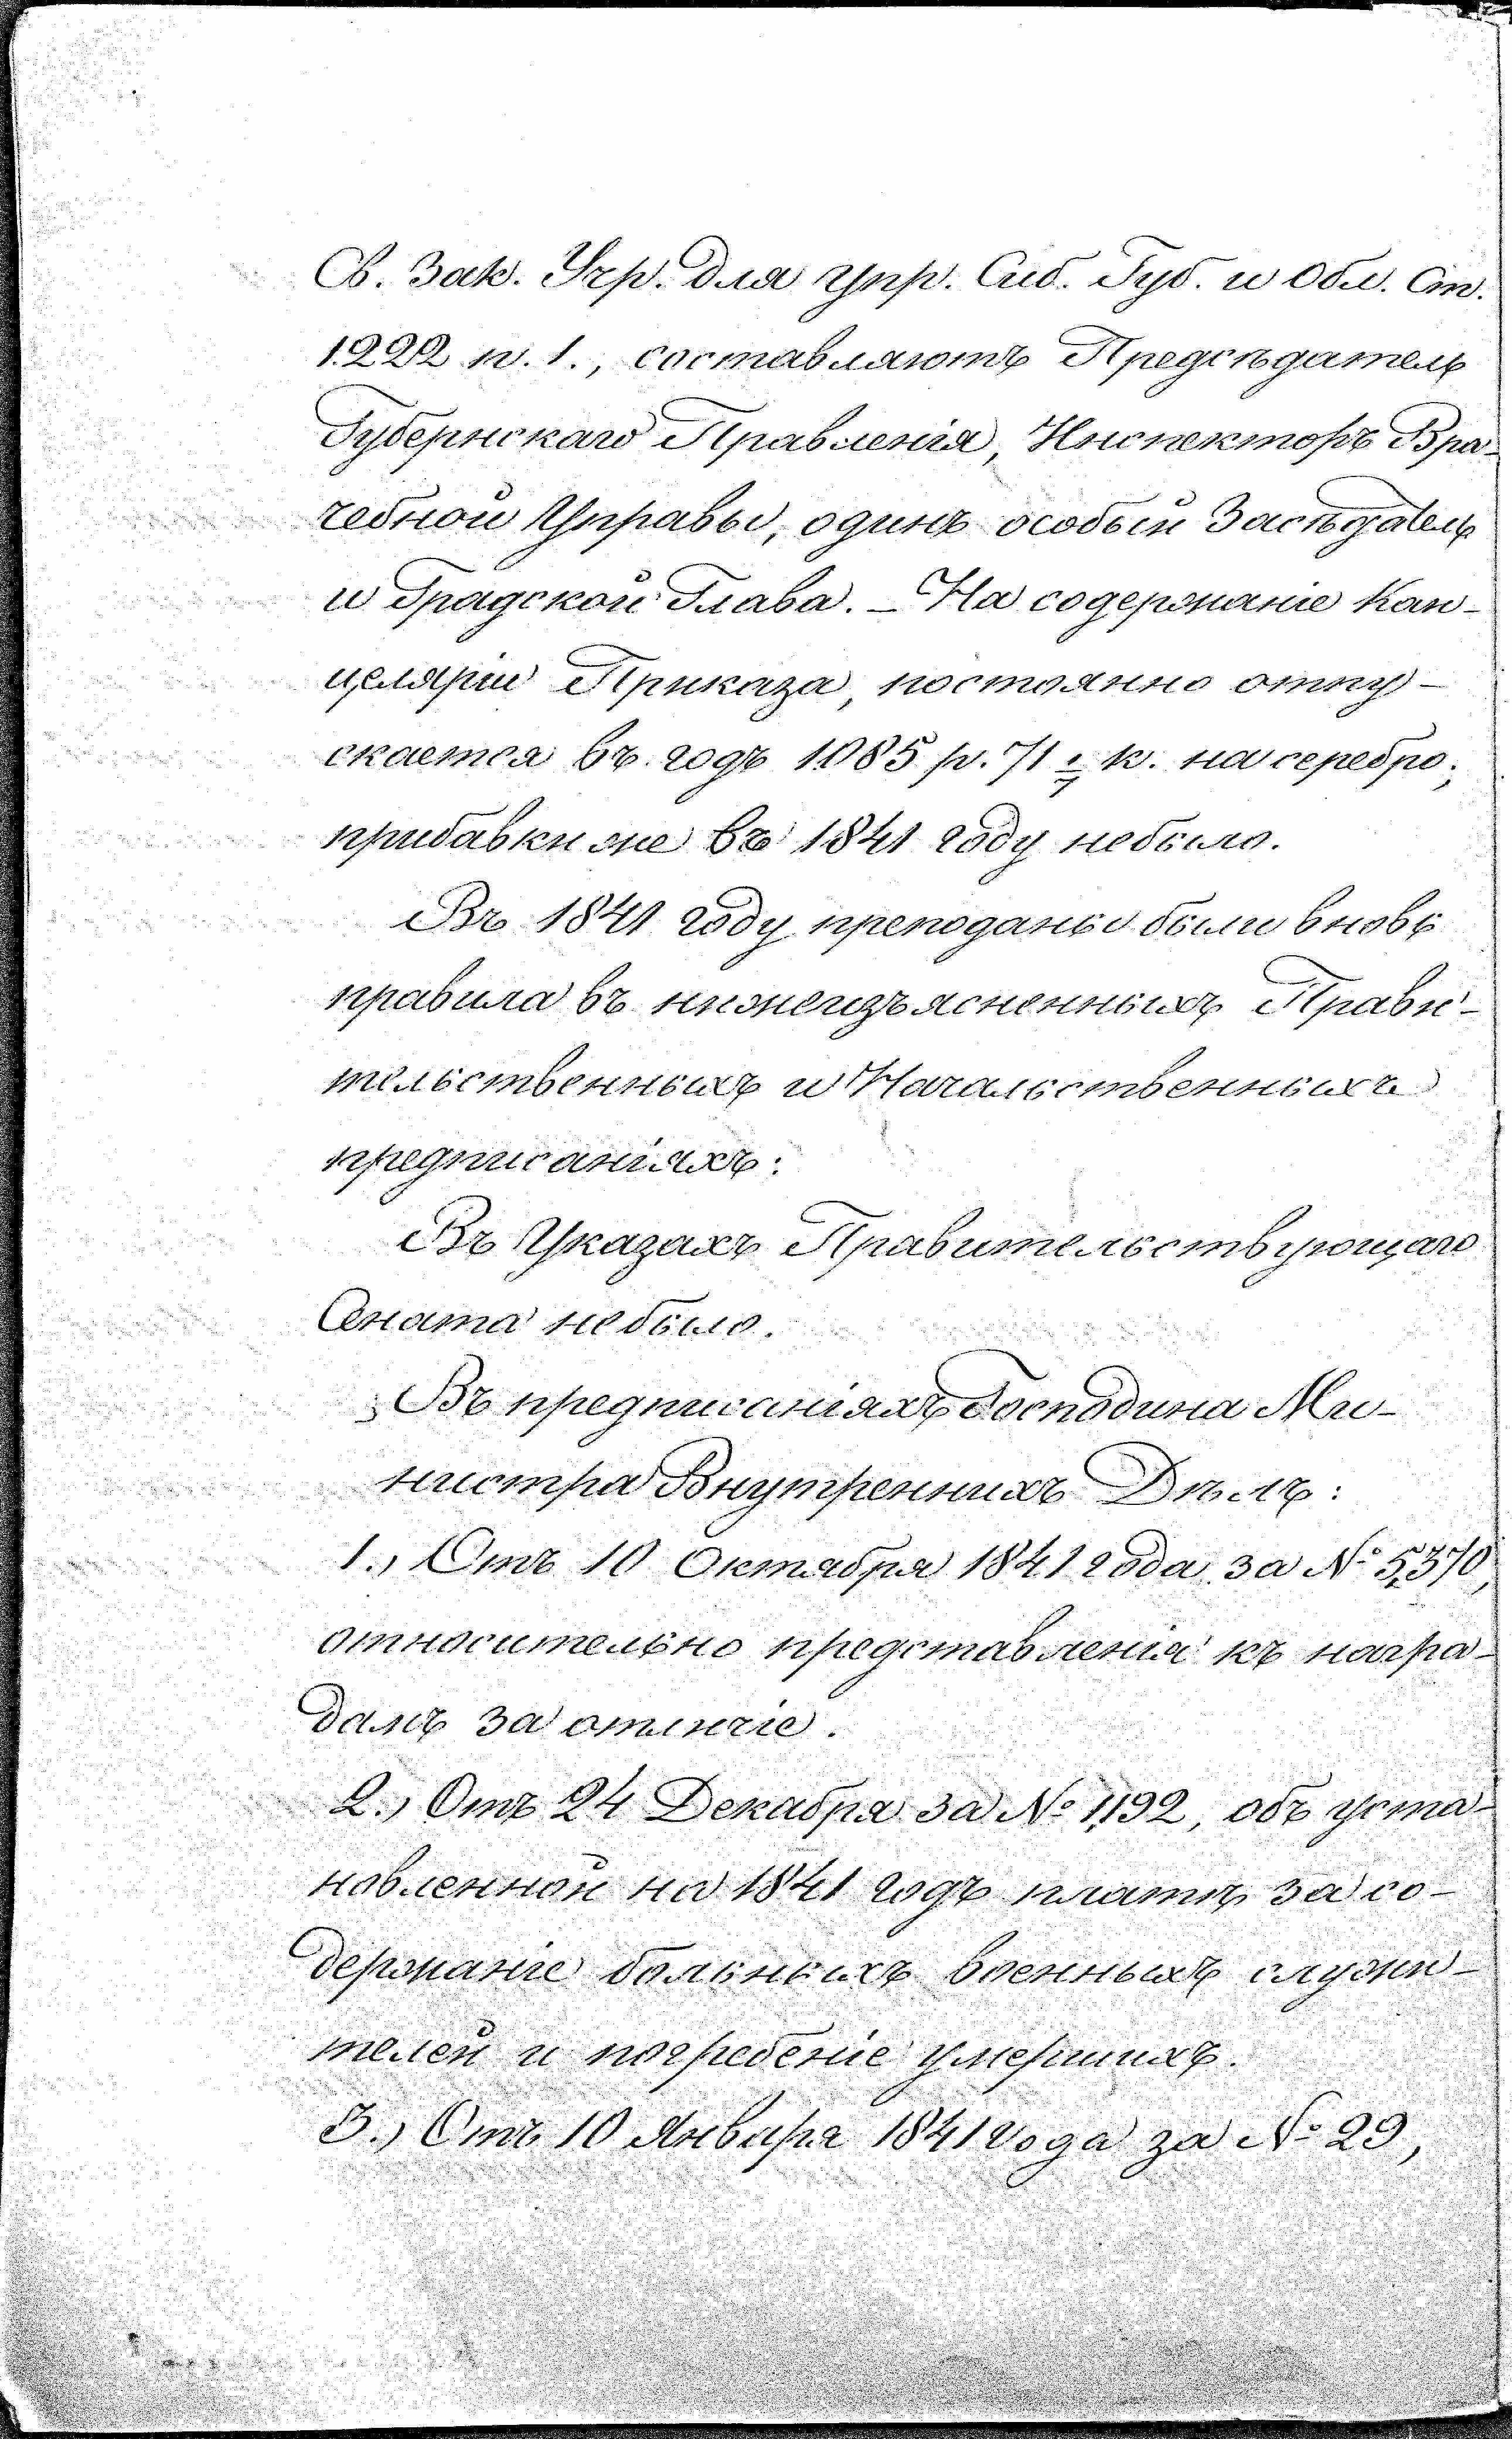 Св. Зак. Учр. для упр. Сиб. Губ. и Обл. Ст.
1.222 п. 1., составляютъ Предсѣдатель
Губернскаго Правленія, Инспекторъ Вра-
чебной Управы, одинъ особый Засѣдатель
и Градской Глава. – На содержаніе Кан-
целяріи Приказа, постоянно отпу-
скается въ годъ 1.085 р. 71 1/7 к. на серебро;
прибавки же въ 1841 году небыло.
Въ 1841 году преподаны были вновь
правила въ нижеизъясненныхъ Прави-
тельственныхъ и Начальственныхъ
предписаніяхъ:
Въ Указахъ Правительствующаго
Сената небыло.
Въ предписаніяхъ Господина Ми-
нистра Внутреннихъ Дѣлъ:
1., Отъ 10 Октября 1841 года за № 5,370,
относительно представленія къ награ-
дамъ за отличіе.
2., Отъ 24 Декабря за № 1,192, объ уста-
новленной на 1841 годъ платѣ за со-
держаніе больныхъ военныхъ служи-
телей и погребеніе умершихъ.
3., Отъ 10 Января 1841 года за № 29,